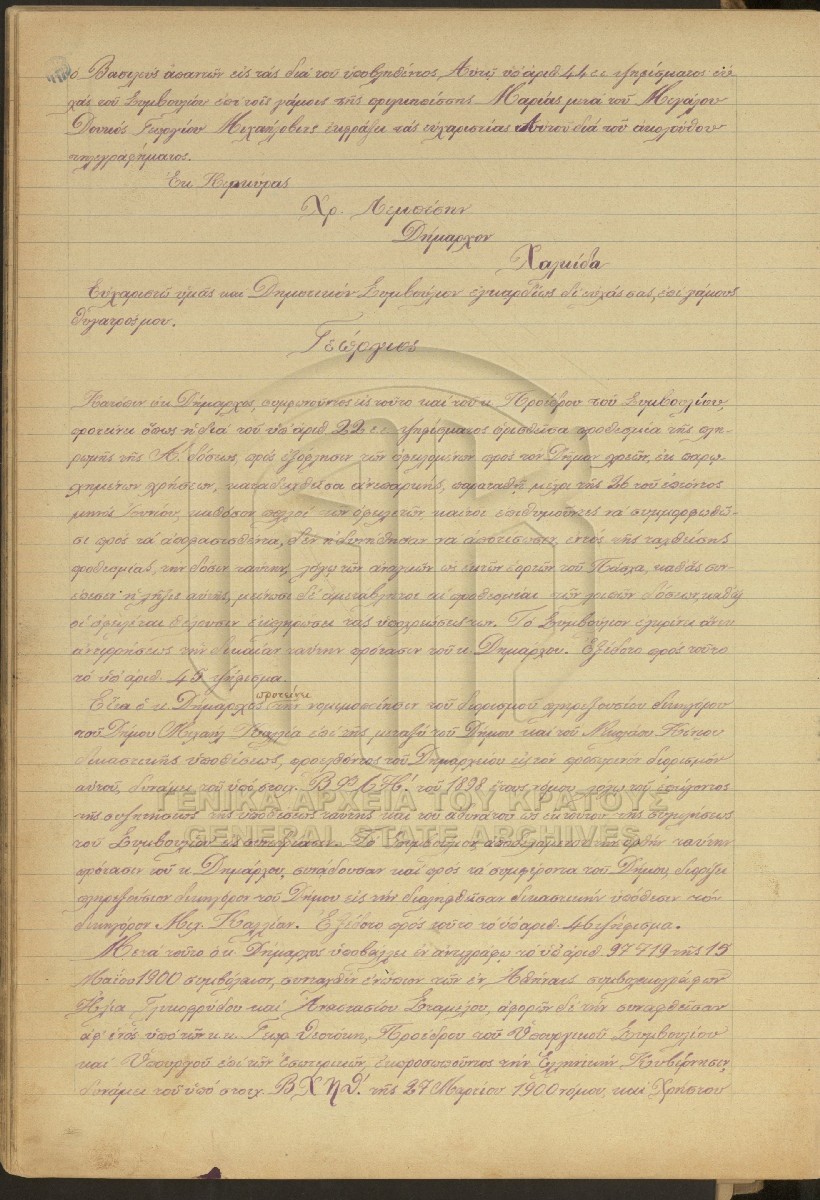 ὁ Βασιλεὺς ἀπαντῶν εἰς τὰς διὰ τοῦ ὑποβληθέντος Αὐτῷ ὑπ' ἀριθ. 44 ε.ε. ψηφίσματος εὐ-
χὰς τοῦ Συμβουλίου ἐπὶ τοῖς γάμοις τῆς πριγκηπίσσης Μαρίας μετὰ τοῦ Μεγάλου
Δουκὸς Γεωργίου Μιχαήλοβιτς ἐκφράζει τὰς εὐχαριστίας Αὐτοῦ διὰ τοῦ ἀκολούθου
τηλεγραφήματος.
Ἐκ Κερκύρας
Χρ. Λεμπέσην
Δήμαρχον
Χαλκίδα
Εὐχαριστῶ ὑμᾶς καὶ Δημοτικὸν Συμβούλιον ἐγκαρδίως δι' εὐχάς σας, ἐπὶ γάμους
θυγατρός μου.
Γεώργιος
Κατόπιν ὁ κ. Δήμαρχος, συμφωνοῦντος εἰς τοῦτο καὶ τοῦ κ. Προέδρου τοῦ Συμβουλίου,
προτείνει ὅπως ἡ διὰ τοῦ ὑπ' ἀριθ. 22 ε.ε. ψηφίσματος ὁρισθεῖσα προθεσμία τῆς πλη-
ρωμῆς τῆς Α'. δόσεως, πρὸς ἐξόφλησιν τῶν ὀφειλομένων πρὸς τὸν Δῆμον χρεῶν, ἐκ παρῳ-
χημένων χρήσεων, καταδειχθεῖσα ἀνεπαρκής, παραταθῇ μέχρι τῆς 26 τοῦ ἐπιόντος
μηνὸς Ἰουνίου, καθόσον πολλοὶ τῶν ὀφειλετῶν καίτοι ἐπιθυμοῦντες νὰ συμμορφωθῶ-
σι πρὸς τὰ ἀποφασισθέντα, δὲν ἠδυνήθησαν νὰ ἀποτίσωσιν, ἐντὸς τῆς ταχθείσης
προθεσμίας, τὴν δόσιν ταύτην, λόγῳ τῶν ἀναγκῶν ὡς ἐκ τῶν ἑορτῶν τοῦ Πάσχα, καθ' ἃς συν-
έπεσεν ἡ λῆξις αὐτῆς, μείνωσι δὲ ἀμετάβλητοι αἱ προθεσμίαι τῶν λοιπῶν δόσεων, καθ' ἃς
οἱ ὀφειλέται θέλουσιν ἐκπληρώσει τὰς ὑποχρεώσεις των. Τὸ Συμβούλιον ἐγκρίνει ἄνευ
ἀντιρρήσεως τὴν δικαίαν ταύτην πρότασιν τοῦ κ. Δημάρχου. Ἐξεδόθη πρὸς τοῦτο
τὸ ὑπ' ἀριθ. 45 ψήφισμα.
Εἶτα ὁ κ. Δήμαρχος προτείνει τὴν νομιμοποίησιν τοῦ διορισμοῦ πληρεξουσίου δικηγόρου
τοῦ Δήμου Μιχαὴλ Καλλία ἐπὶ τῆς μεταξὺ τοῦ Δήμου καὶ τοῦ Νικολάου
δικαστικῆς ὑποθέσεως, προελθόντος τοῦ Δημαρχείου εἰς τὸν προσωρινὸν διορισμὸν
αὐτοῦ, δυνάμει τοῦ ὑπὸ στοιχ. ΒΦΛΗ'. τοῦ 1898 ἔτους νόμου, λόγῳ τοῦ ἐπείγοντος
τῆς συζητήσεως τῆς ὑποθέσεως ταύτης καὶ τοῦ ἀδυνάτου ὡς ἐκ τούτου τῆς συγκλήσεως
τοῦ Συμβουλίου εἰς συνεδρίασιν. Τὸ Συμβούλιον ἀποδεχόμενον τὴν ὀρθὴν ταύτην
πρότασιν τοῦ κ. Δημάρχου, συνᾴδουσαν καὶ πρὸς τὰ συμφέροντα τοῦ Δήμου, διορίζει
πληρεξούσιον δικηγόρον τοῦ Δήμου εἰς τὴν διαληφθεῖσαν δικαστικὴν ὑπόθεσιν τὸν
δικηγόρον Μιχ. Καλλίαν. Ἐξεδόθη πρὸς τοῦτο τὸ ὑπ' ἀριθ. 46 ψήφισμα.
Μετὰ τοῦτο ὁ κ. Δήμαρχος ὑποβάλλει ἐν ἀντιγράφῳ τὸ ὑπ' ἀριθ. 97719 τῆς 15
Μαΐου 1900 συμβόλαιον, συνταχθὲν ἐνώπιον τῶν ἐν Ἀθήναις συμβολαιογράφων
Ἠλία Γλυκοφρύδου καὶ Ἀναστασίου Σταμέλου, ἀφορῶν δὲ τὴν συναφθεῖσαν
ἀφ' ἑνὸς ὑπὸ τῶν κ.κ. Γεωρ. Θεοτόκη, Προέδρου τοῦ Ὑπουργικοῦ Συμβουλίου
καὶ Ὑπουργοῦ ἐπὶ τῶν Ἐσωτερικῶν, ἐκπροσωποῦντος τὴν Ἑλληνικὴν Κυβέρνησιν,
δυνάμει τοῦ ὑπὸ στοιχ. ΒΧΗΘ'. τῆς 27 Μαρτίου 1900 νόμου, καὶ Χρήστου
ΓΕΝΙΚΑ ΑΡΧΕΙΑ ΤΟΥ ΚΡΑΤΟΥΣ
GENERAL STATE ARCHIVES